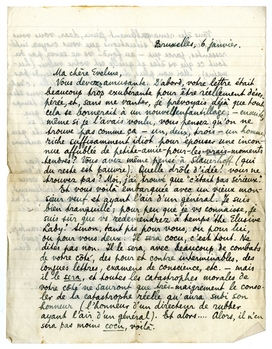 Bruxelles, 6 janvier.
Ma chère Eveline,
Vous devez amusante. D'abord, votre lettre était
beaucoup trop exubérante pour être réellement déses-
pérée, et, sans me vanter, je prévoyais déjà que tout
cela se bornerait à un nouvel enfantillage; — ensuite
même si je l'avais voulu, vous pensez qu'on ne
trouve pas comme ça — un, deux, trois — un homme
riche suffisamment idiot pour épouser une incon-
nue affublée de petite-amie-pour-les-vrais-moments
tendres? Vous avez même pensé à Slauerhoff (qui
du reste est pauvre). Quelle drôle d'idée! vous ne
trouvez pas? Moi, j'ai trouvé que c'était pas sérieux.
Et vous voilà embarquée avec un vieux mon-
sieur veuf et ayant l'air d'un général. Je suis
bien tranquille; pour peu que je vous connaisse, je
suis sûr que vous redeviendrez à temps the Elusive
Lady. Sinon, tant pis pour vous, ou pour lui,
ou pour vous deux. Il sera cocu, c'est tout. Ne
dites pas non. Il le sera, avec beaucoup de combats
de votre côté, des pour et contre interminables, des
longues lettres, examens de conscience, etc. — mais
il le sera, et toutes les catastrophes morales de
votre côté ne sauront que très-maigrement le conso-
ler de la catastrophe réelle qui aura, subi son
honneur (l'honneur d'un directeur de rubber
ayant l'air d'un général). Et alors.... Alors, il n'en
sera pas moins cocu, voilà.